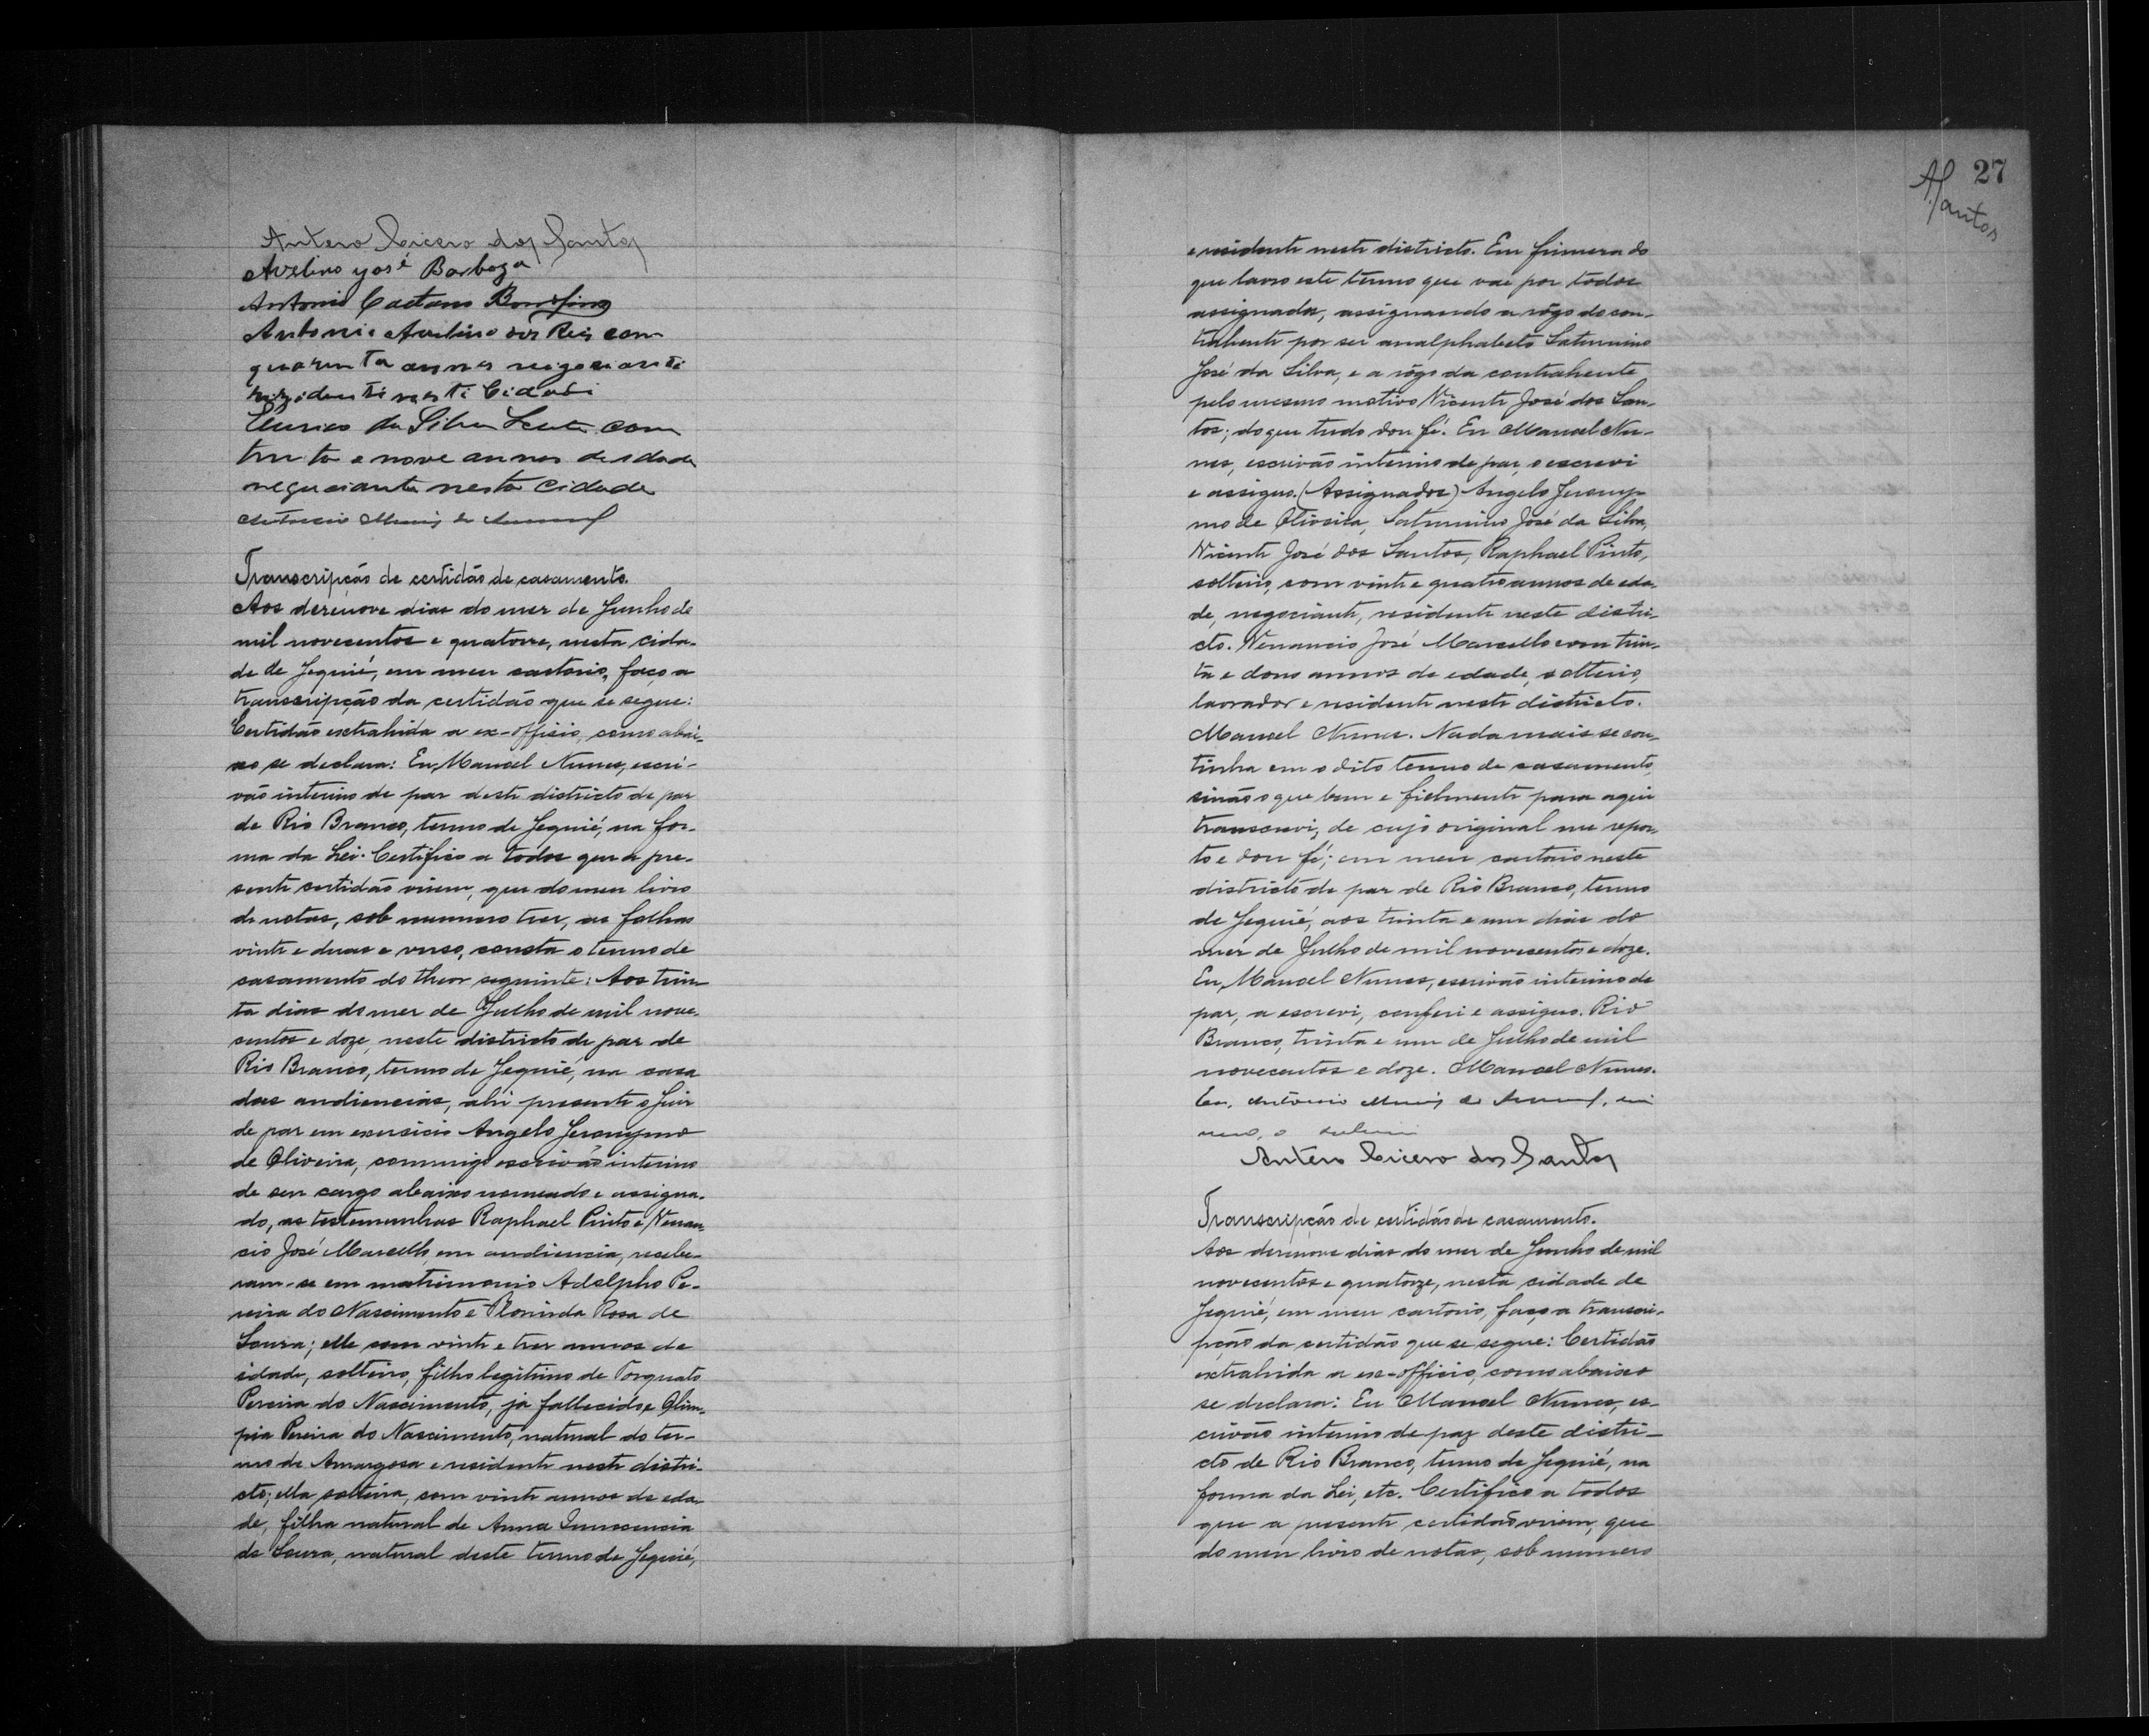 Antero Cicero dos Santos
Avelino José Barboza
Antonio Caetano Bomfim
Antonio Avelino dos Reis com
quarenta annos negociante
rezidente nesti Cidade
Eurico da Silva Leite com
trinta e nove annos de idade
negociante nesta Cidade
Antonio Muniz do
Transcripção de certidão de casamento.
Aos dezenove dias do mez de Junho de
mil novecentos e quatorze, nesta cida-
de de Jequié, em meu cartorio, faço a
transcripção da certidão que se segue:
Certidão extrahida a ex-officio, como abai-
xo se declara: Eu, Manoel Nunes, escri-
vão interino de paz deste districto de paz
de Rio Branco, termo de Jequié, na for-
ma da Lei. Certifico a todos que a pre-
sente certidão virem, que do meu livro
de notas, sob numero trez, as folhas
vinte e duas e verso, consta o termo de
casamento do theor seguinte: Aos trin-
ta dias do mez de Julho de mil nove-
centos e doze, neste districto de paz de
Rio Branco, termo de Jequié, na casa
das audiencias, ahi presente o Juiz
de paz em exercicio Angelo Jeronymo
de Oliveira, commigo escrivão interino
de seu cargo abaixo nomeado e assigna-
do, as testemunhas Raphael Pinto e Venan-
cio José Marcello em audiencia, recebe-
ram-se em matrimonio Adolpho Pe-
reira do Nascimento e Florinda Rosa de
Souza; elle com vinte e trez annos de
idade, solteiro, filho legitimo de Torquato
Pereira do Nascimento, já fallecido, e Olim-
pia Pereira do Nascimento, natural do ter-
mo de Amargosa e residente neste distri-
cto; ella solteira, com vinte annos de eda-
de, filha natural de Anna Innocencia
de Souza, natural deste termo de Jequié,
27
ASantos
e residente neste districto. Em firmeza do
que lavro este termo que vae por todos
assignados, assignando a rôgo do con-
trahente por ser analphabeto Saturnino
José da Silva, e a rôgo da contrahente
pelo mesmo motivo Vicente José dos San-
tos; do que tudo dou fé. Eu Manoel Nu-
nes, escrivão interino de paz, o escrevi
e assigno. (Assignados) Angelo Jerony-
mo de Oliveira, Saturnino José da Silva,
Vicente José dos Santos, Raphael Pinto,
solteiro, com vinte e quatro annos de eda-
de, negociante, residente neste distri-
cto. Venancio José Marcello com trin-
ta e dous annos de edade, solteiro,
lavrador e residente neste districto.
Manoel Nunes. Nada mais se con-
tinha em o dito termo de casamento,
sinão o que bem e fielmente para aqui
transcrevi, de cujo original me repor-
to e dou fé; em meu cartorio neste
districto de paz de Rio Branco, termo
de Jequié, aos trinta e um dias do
mez de Julho de mil novecentos e doze.
Eu, Manoel Nunes, escrivão interino de
paz, a escrevi, conferi e assigno. Rio
Branco, trinta e um de Julho de mil
novecentos e doze. Manoel Nunes.
Eu, Antonio Muniz do
o
Antero Cicero dos Santos
Transcripção de certidão de casamento.
Aos dezenove dias do mez de Junho de mil
novecentos e quatorze, nesta cidade de
Jequié, em meu cartorio, faço a transcri-
pção da certidão que se segue: Certidão
extrahida a ex-officio, como abaixo
se declara: Eu Manoel Nunes, es-
crivão interino de paz deste distri-
cto de Rio Branco, termo de Jequié, na
forma da Lei, etc. Certifico a todos
que a presente certidão virem, que
do meu livro de notas, sob numero